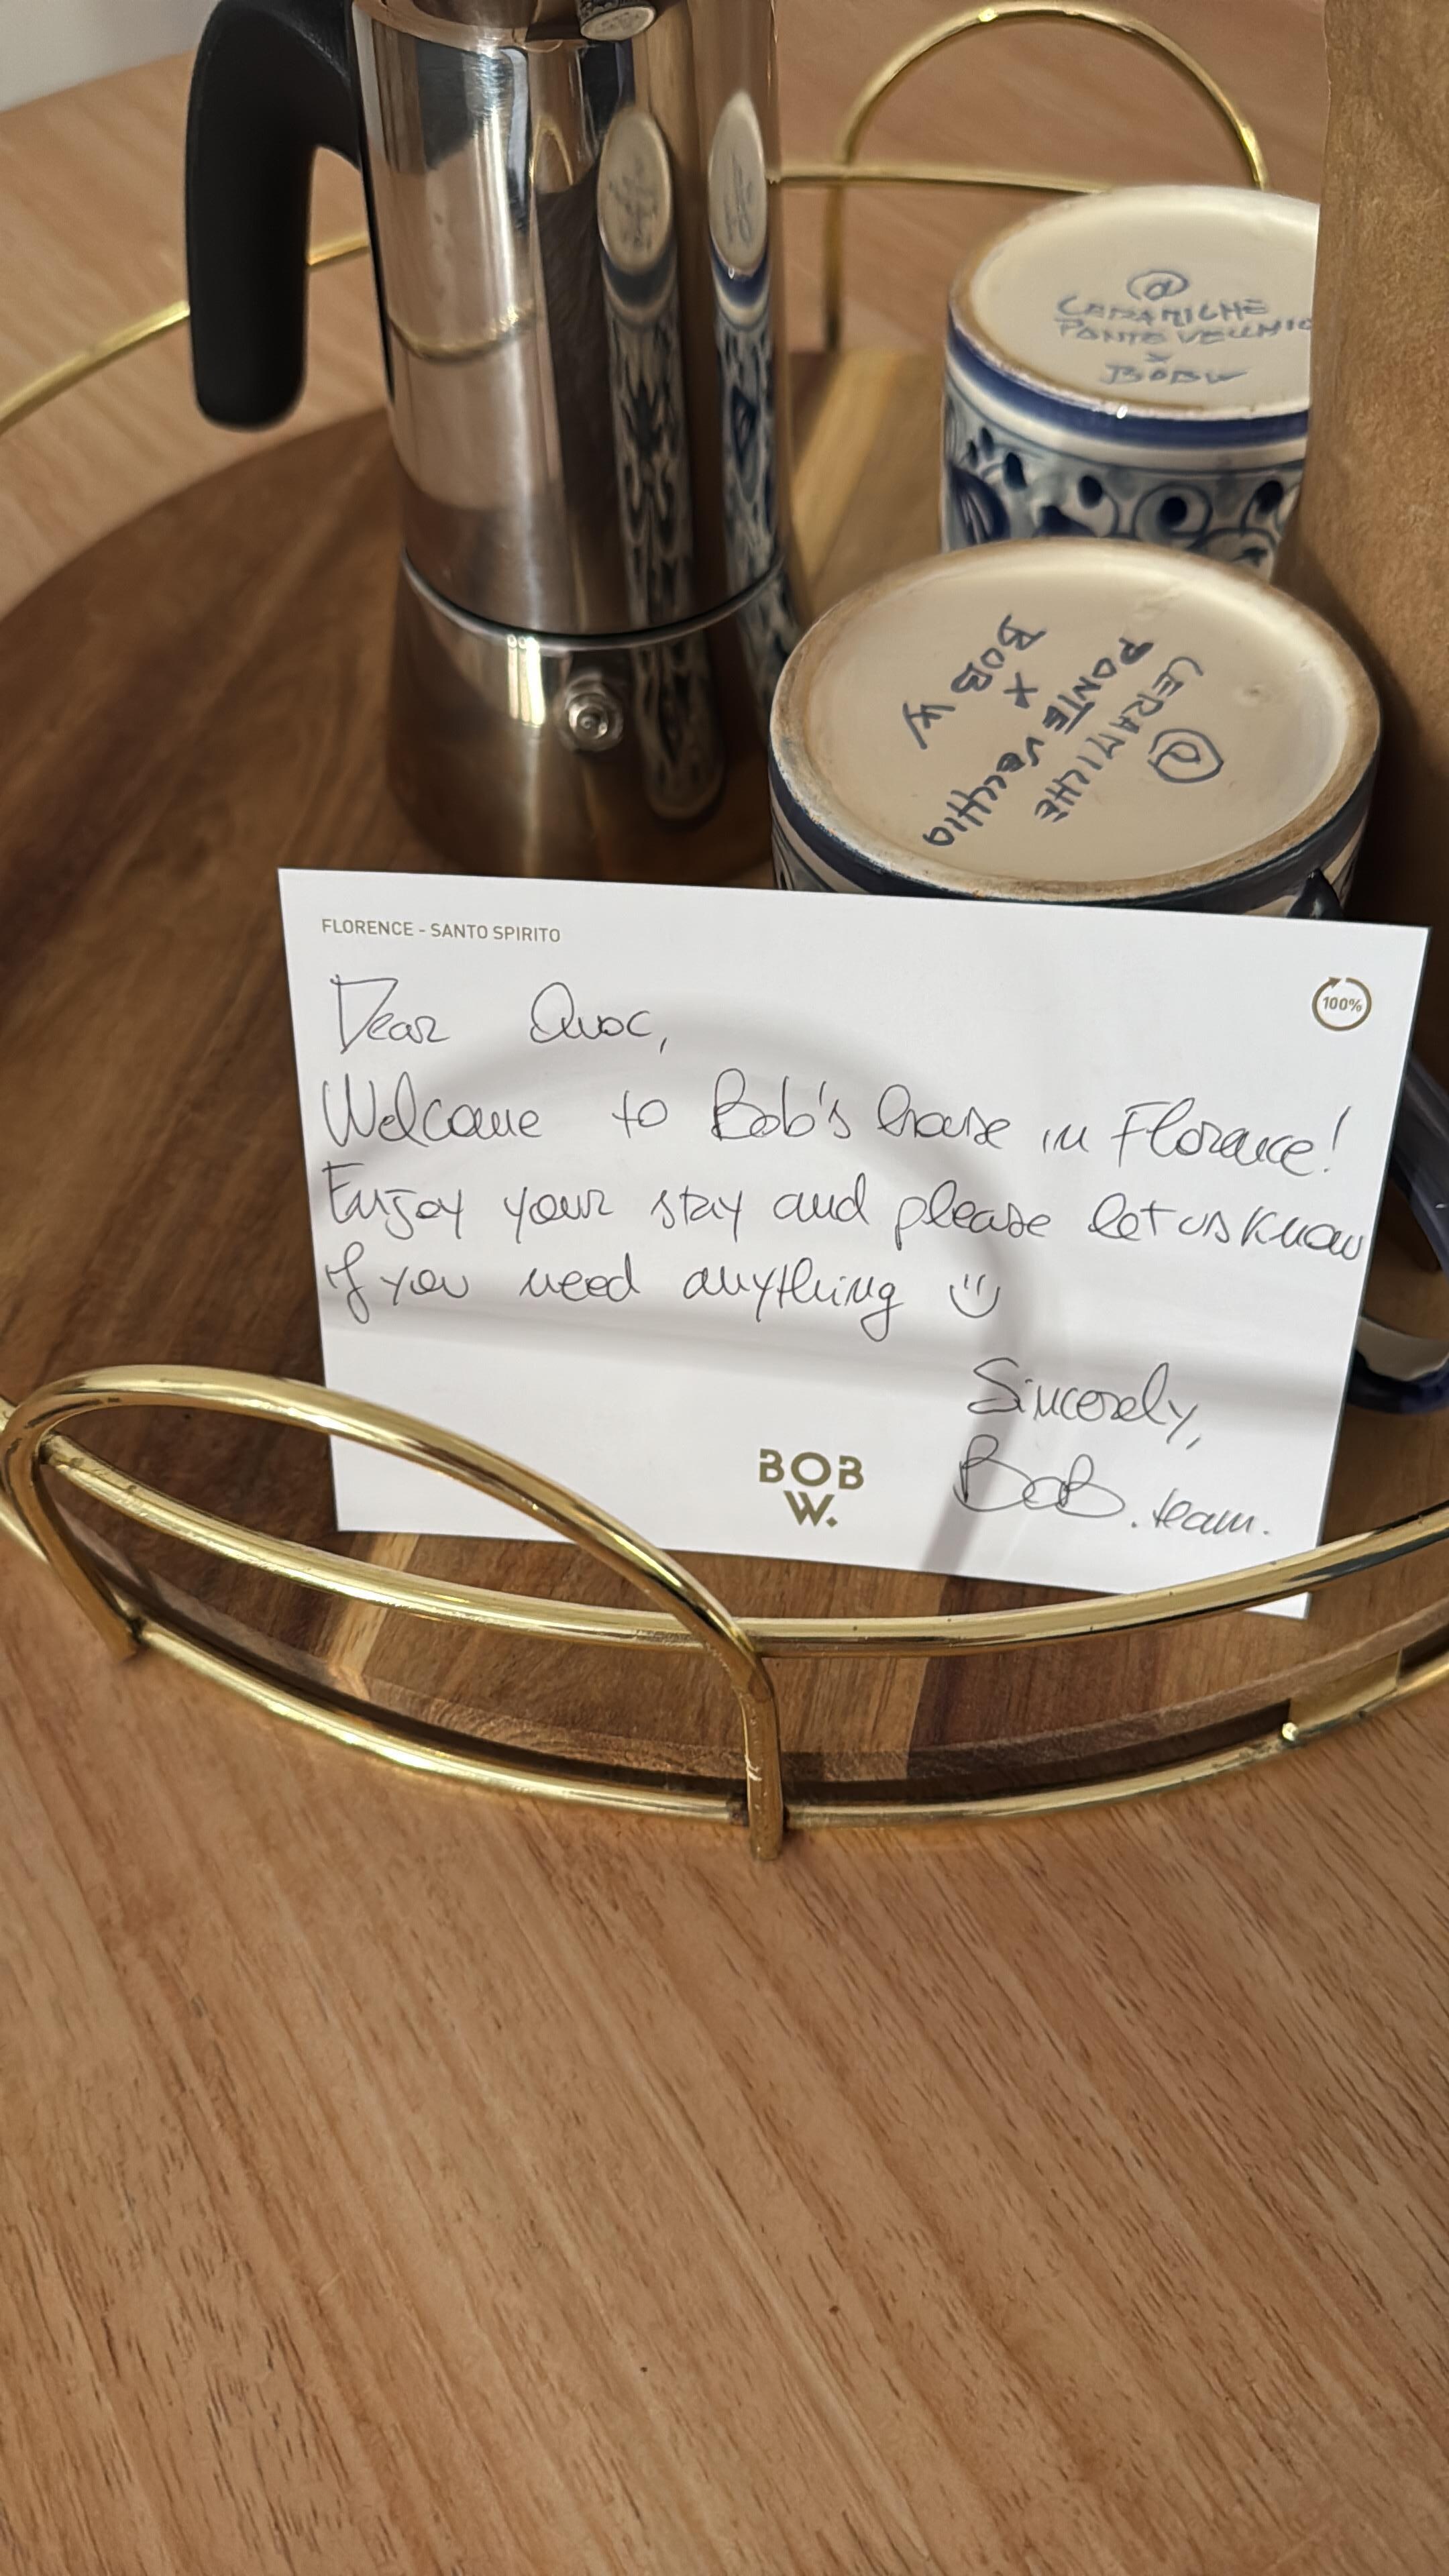 @
CERAMICHE
PONTE VECCHIO
X
BOB W
@
CERAMICHE
PONTE VECCHIO
X
BOB W
FLORENCE - SANTO SPIRITO
100%
Dear Quoc,
Welcome to Bob's house in Florence!
Enjoy your stay and please let us know
if you need anything
Sincerely,
BoB. team.
BOB
W.